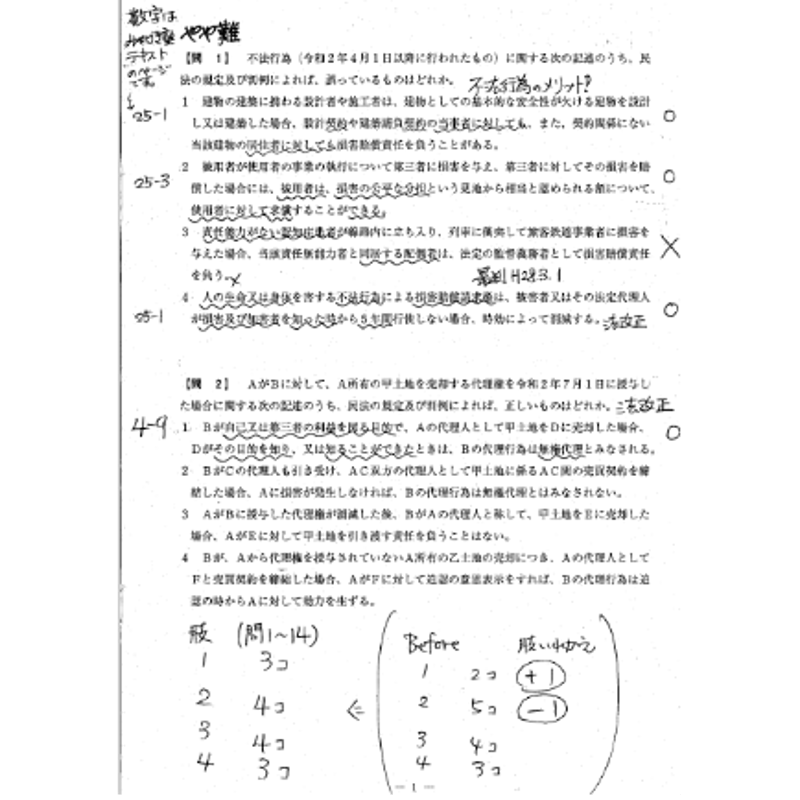 数字は
やや難
テキスト
のページ
です
【問 1】 不法行為(令和2年4月1日以降に行われたもの)に関する次の記述のうち、民
法の規定及び判例によれば、誤っているものはどれか。 不法行為のメリット?
25-1
1 建物の建築に携わる設計者や施工者は、建物としての基本的な安全性が欠ける建物を設計 ○
し又は建築した場合、設計契約や建築請負契約の当事者に対しても、また、契約関係にない
当該建物の居住者に対しても損害賠償責任を負うことがある。
25-3
2 被用者が使用者の事業の執行について第三者に損害を与え、第三者に対してその損害を賠 ○
償した場合には、被用者は、損害の公平な分担という見地から相当と認められる額について、
使用者に対して求償することができる。
3 責任能力がない認知症患者が線路内に立ち入り、列車に衝突して旅客鉄道事業者に損害を ×
与えた場合、当該責任無能力者と同居する配偶者は、法定の監督義務者として損害賠償責任
を負う。× 最判H28.3.1
25-1
4 人の生命又は身体を害する不法行為による損害賠償請求権は、被害者又はその法定代理人 ○
が損害及び加害者を知った時から5年間行使しない場合、時効によって消滅する。法改正
【問 2】 AがBに対して、A所有の甲土地を売却する代理権を令和2年7月1日に授与し
た場合に関する次の記述のうち、民法の規定及び判例によれば、正しいものはどれか。法改正
4-9
1 Bが自己又は第三者の利益を図る目的で、Aの代理人として甲土地をDに売却した場合、 ○
Dがその目的を知り、又は知ることができたときは、Bの代理行為は無権代理とみなされる。
2 BがCの代理人も引き受け、AC双方の代理人として甲土地に係るAC間の売買契約を締
結した場合、Aに損害が発生しなければ、Bの代理行為は無権代理とはみなされない。
3 AがBに授与した代理権が消滅した後、BがAの代理人と称して、甲土地をEに売却した
場合、AがEに対して甲土地を引き渡す責任を負うことはない。
4 Bが、Aから代理権を授与されていないA所有の乙土地の売却につき、Aの代理人として
Fと売買契約を締結した場合、AがFに対して追認の意思表示をすれば、Bの代理行為は追
認の時からAに対して効力を生ずる。
肢 (問1~14)
1 3コ
2 4コ
3 4コ
4 3コ
⇐
Before 肢いれかえ
1 2コ +1
2 5コ -1
3 4コ
4 3コ
- 1 -